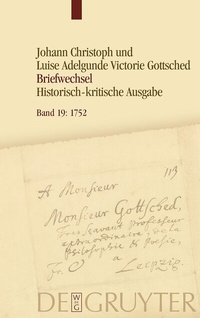 Johann Christoph und
Luise Adelgunde Victorie Gottsched
Briefwechsel
Historisch-kritische Ausgabe
Band 19: 1752
113
A Monsieur
Monsieur Gottsched,
Tres savant professeur
extraordinaire, de la
Philosophie & Poesie,
Fr. a Leipzig.
DE GRUYTER